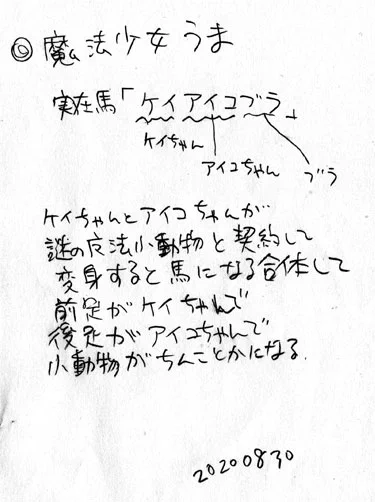 ◎魔法少女うま
実在馬「ケイアイコブラ」
ケイちゃん
アイコちゃん
ブラ
ケイちゃんとアイコちゃんが
謎の魔法小動物と契約して
変身すると馬になる合体して
前足がケイちゃんで
後足がアイコちゃんで
小動物がちんことかになる.
20200830